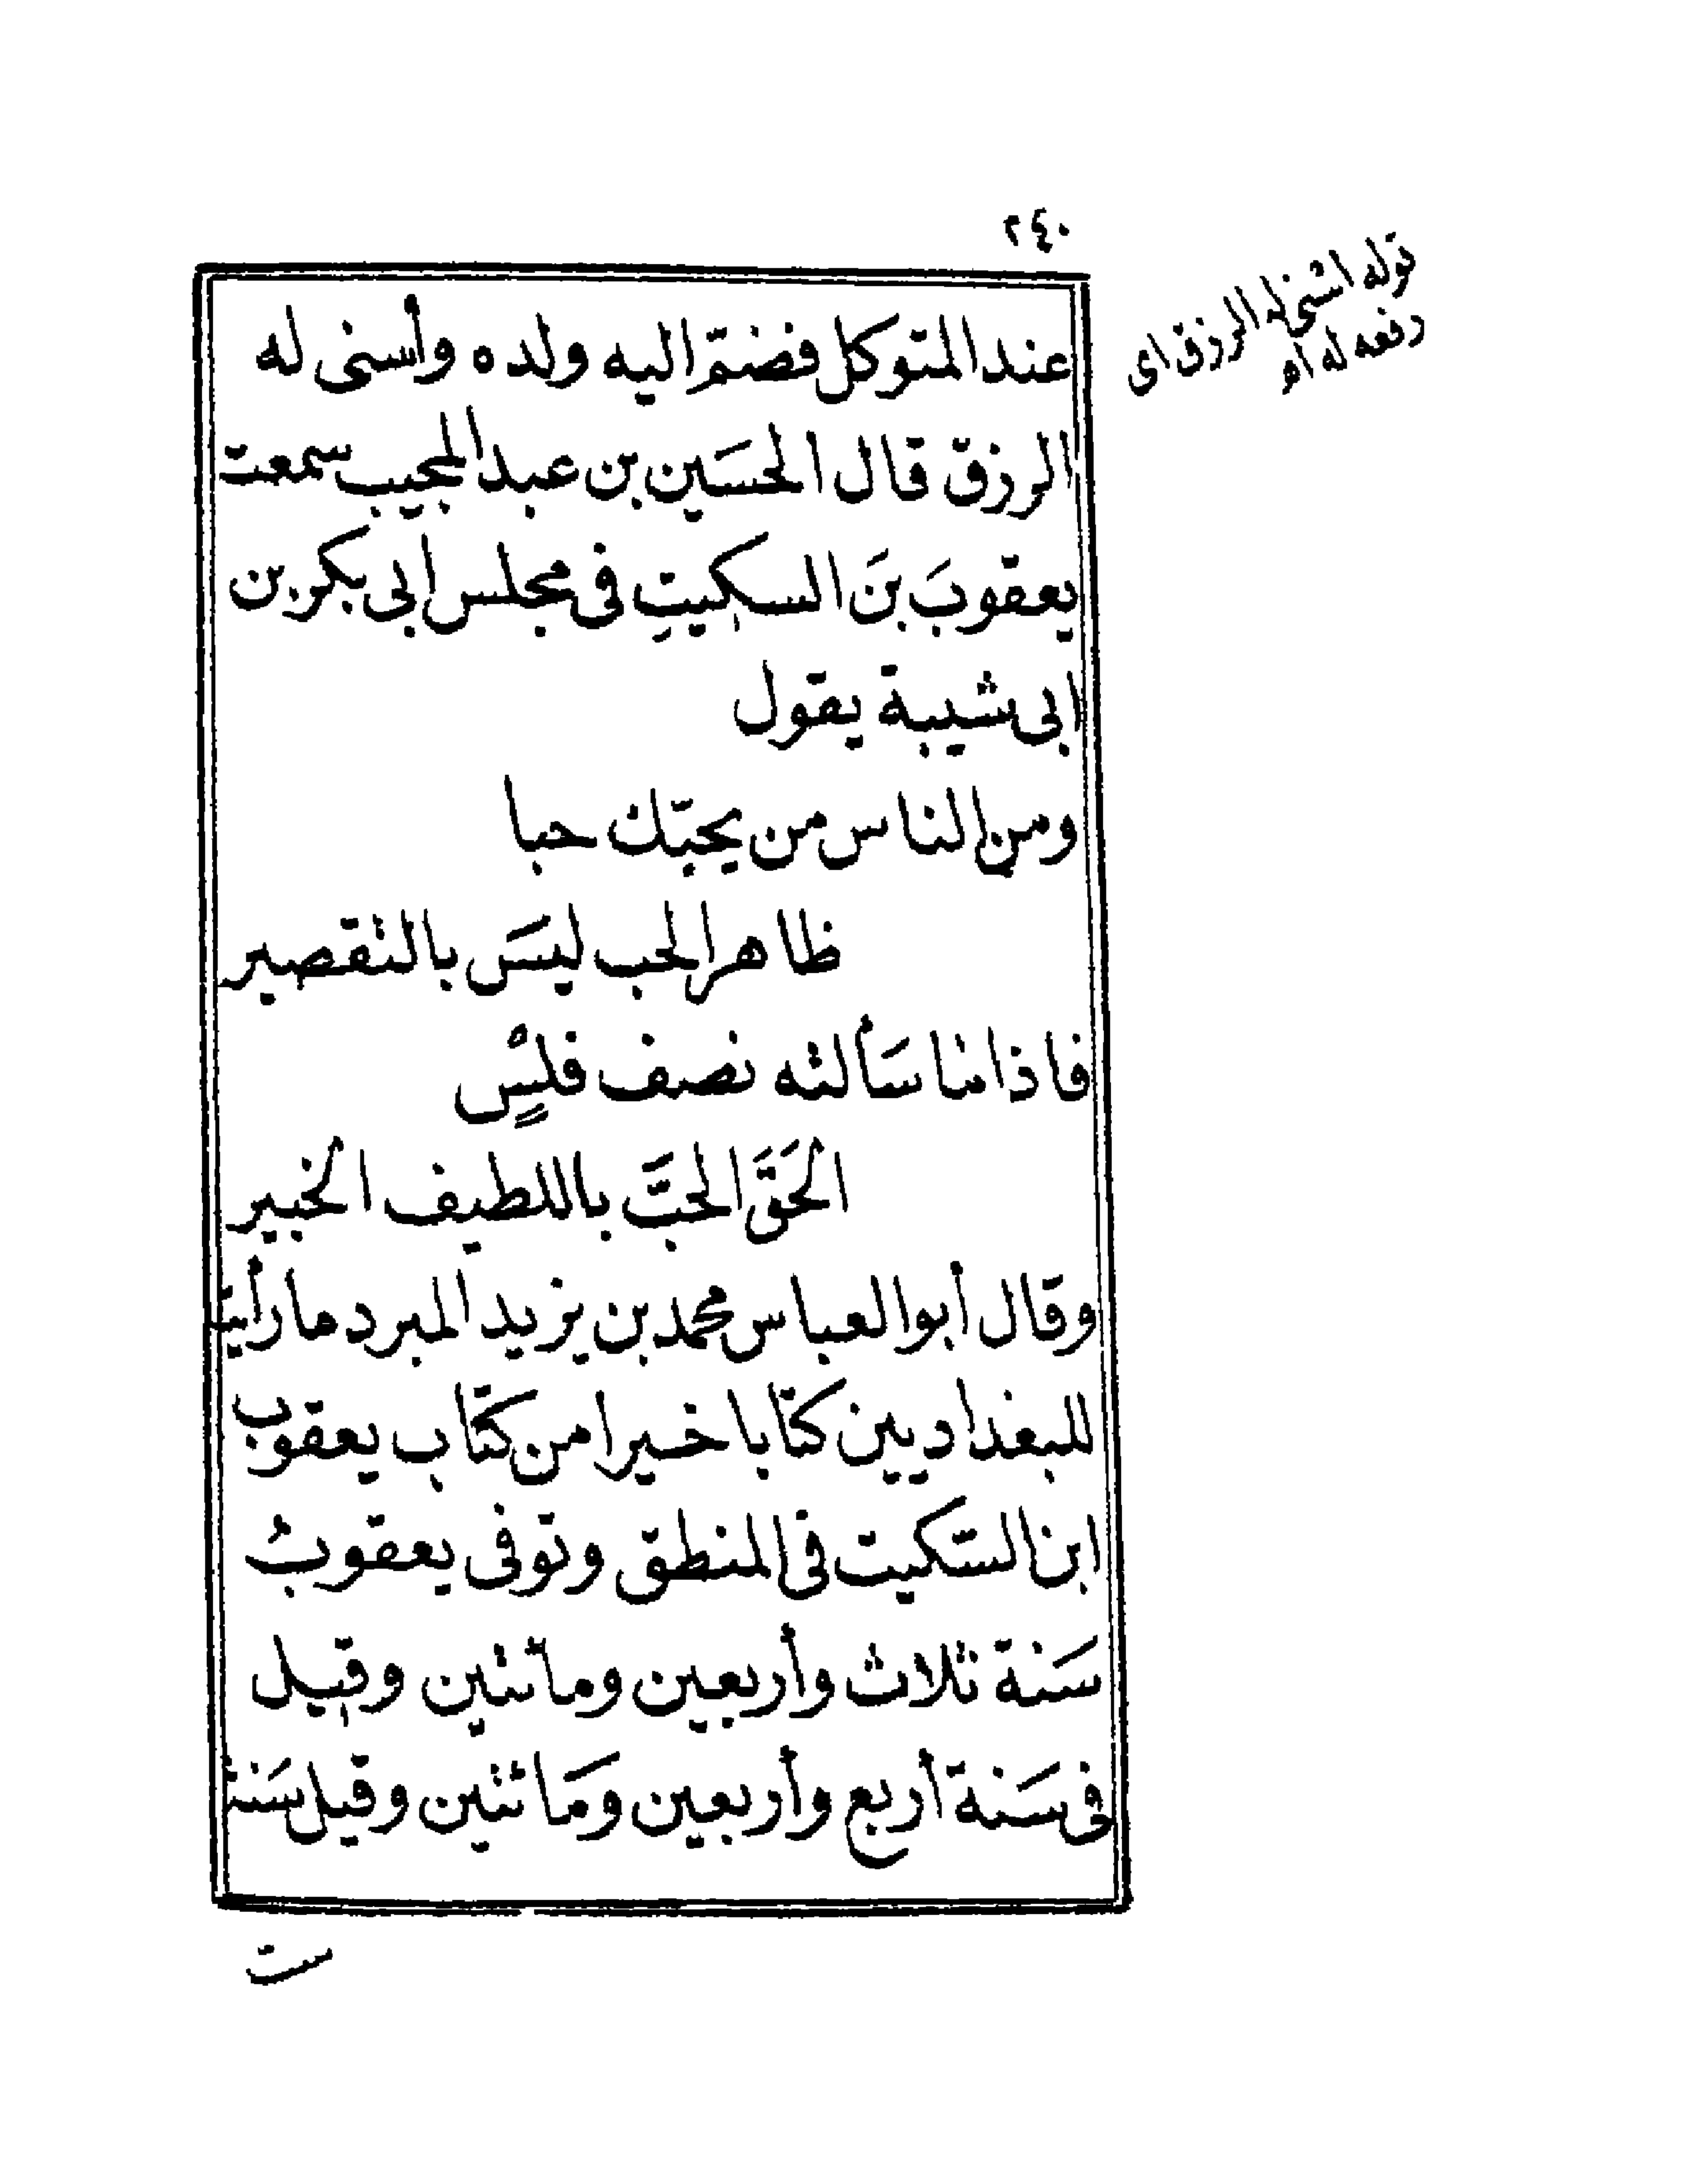 ٢٤٠
قوله اسنى له الرزق اى
دفعه له اه
عند المتوكل فضمّ اليه ولده وأسنى له
الرزق قال الحسَين بن عبد المجيب سمعت
يعقوبَ بنَ السكيتِ فى مجلس أبى بكر بن
ابى شيبة يقول
ومن الناس من يحبّك حبا
ظاهر الحب ليسَ بالتقصير
فاذا ما سَألته نصف فلْسٍ
الحَقَّ الحبَّ باللطيف الخبير
وقال أبو العباس محمد بن يزيد المبرد ما رأيت
للبغداديين كتابا خيرا من كتاب يعقوب
ابن السّكيت فى المنطق وتوفى يعقوبُ
سَنة ثلاث وأربعين ومائتين وقيل
فى سَنة أربع وأربعين ومَائتين وقيل سَنة
ست